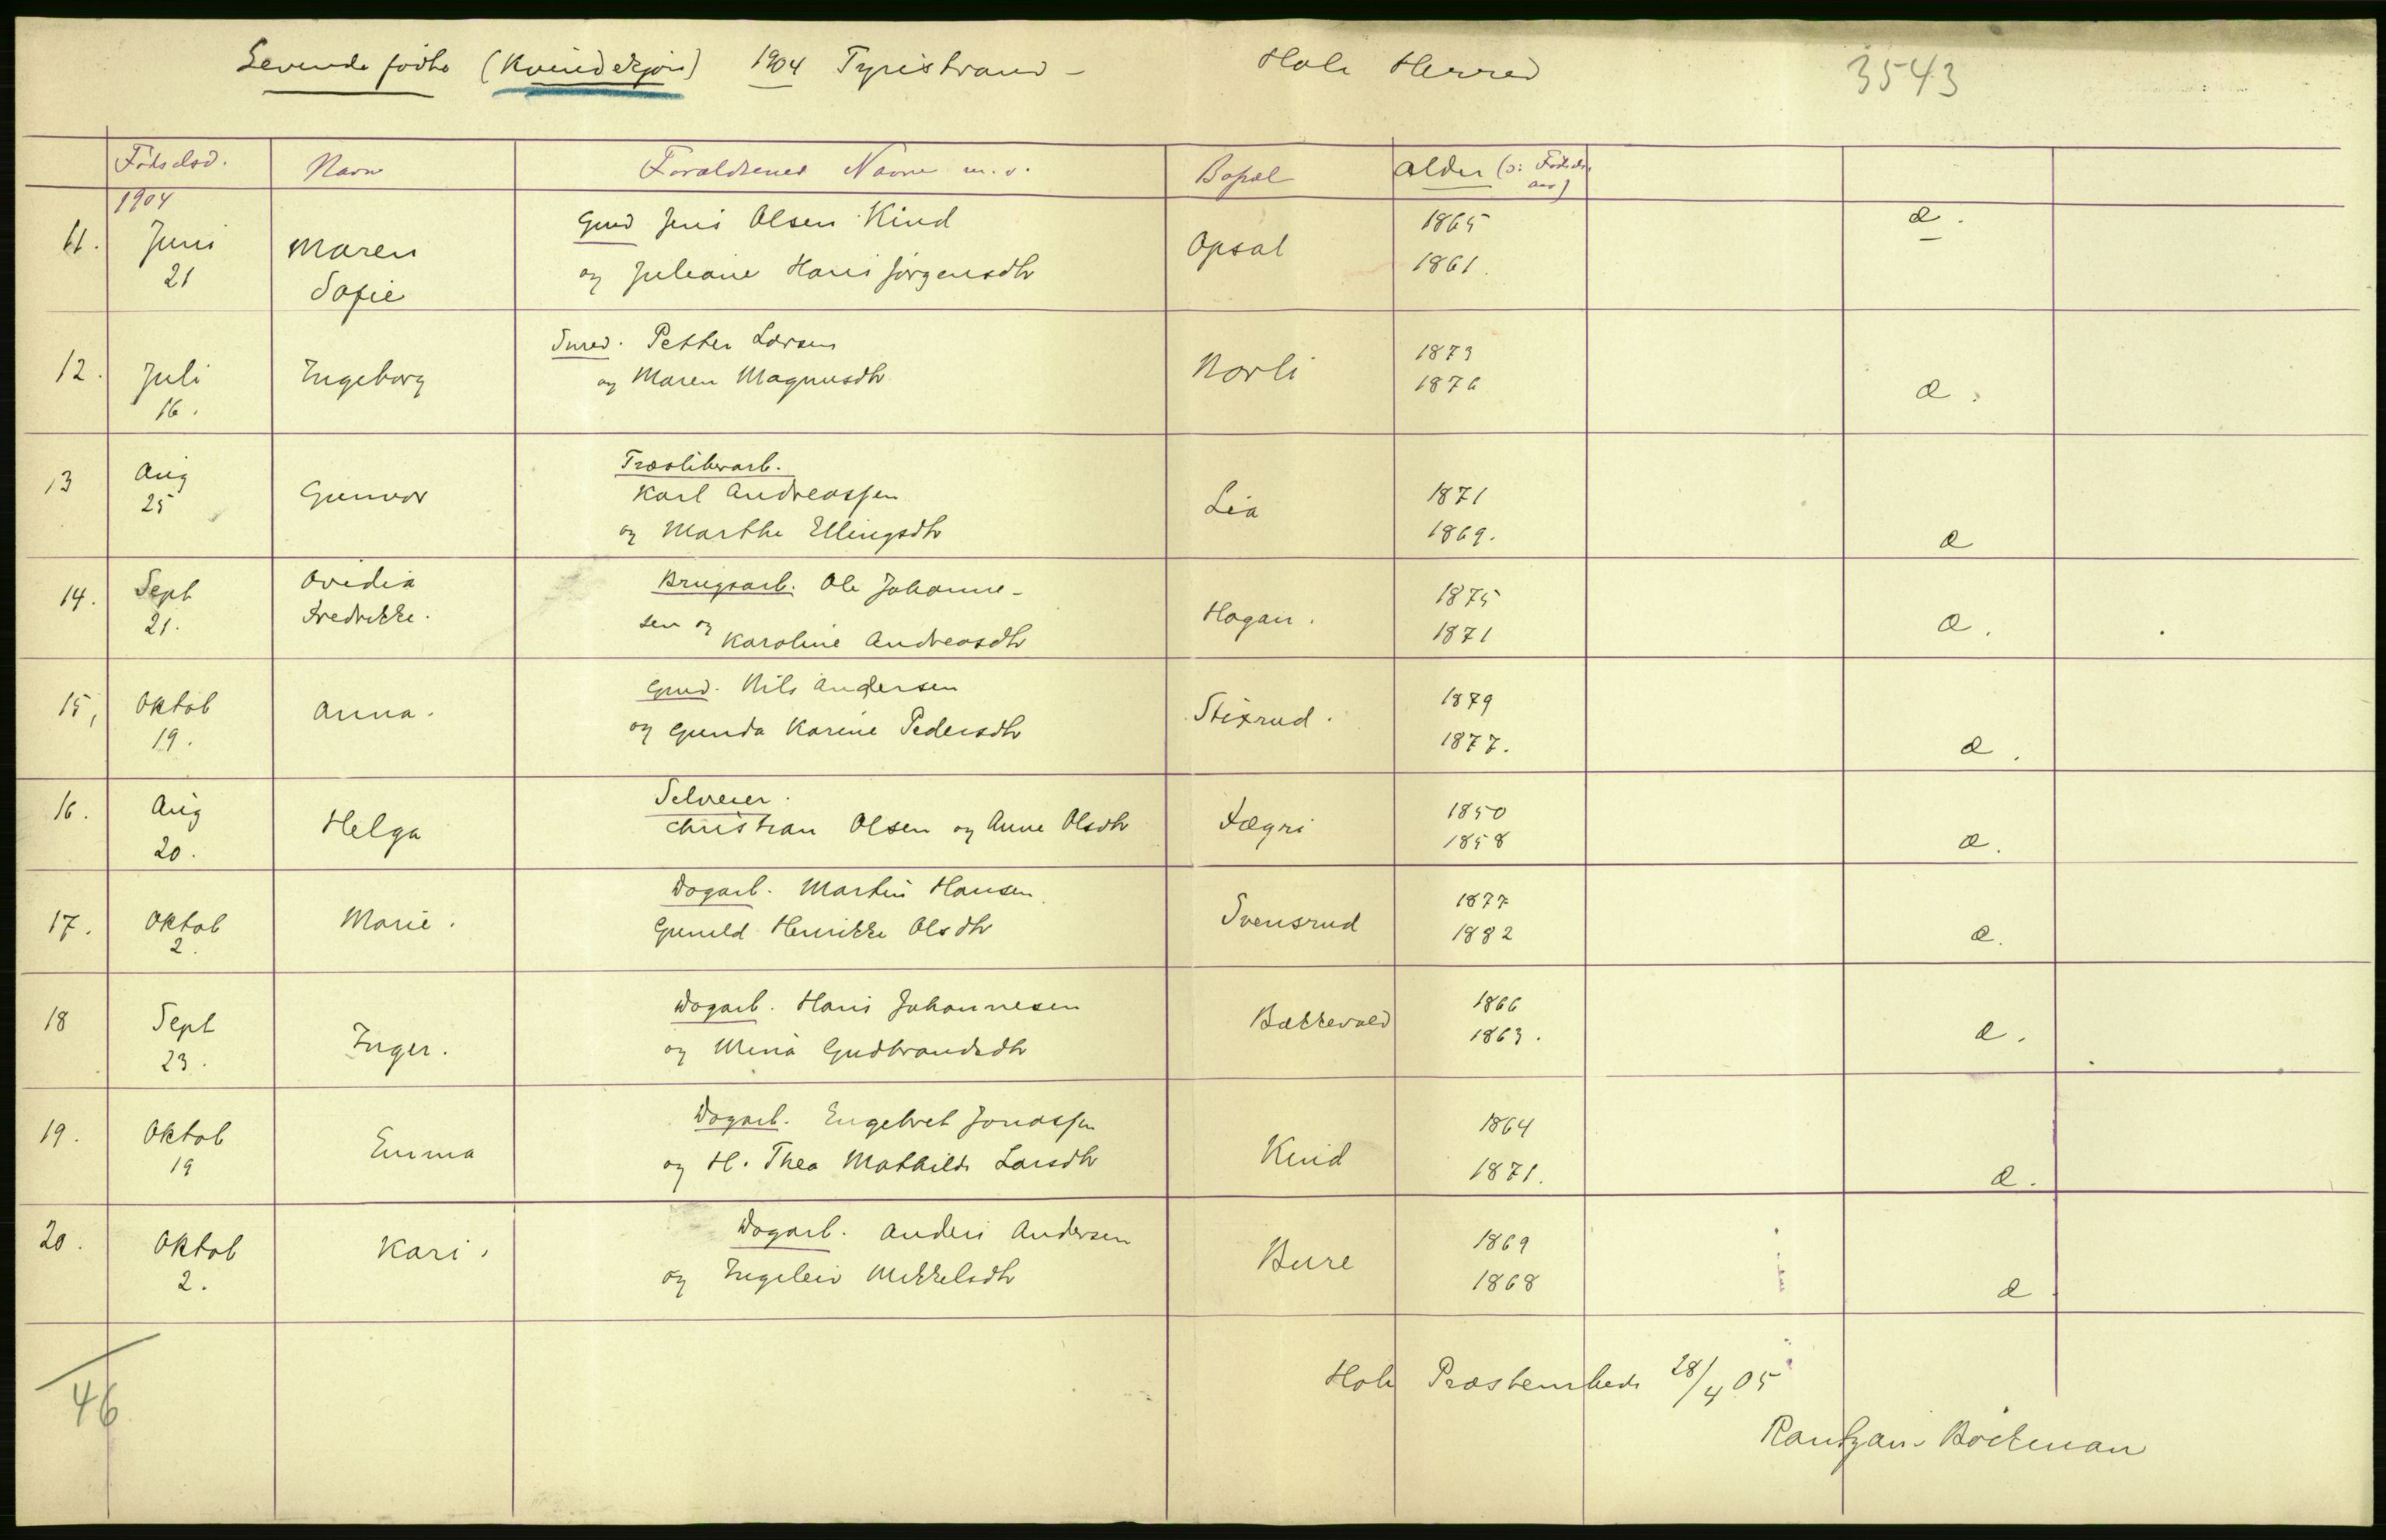 Levende fødte (Kvindekjøn) 1904 Tyristrand - Hole Herred 3543
Fødselsd. Navn Forældrenes Navne m.v. Bopæl Alder (ɔ: Fødsels-
aar)
1904
11. Juni 21 Maren Sofie Gmd Jens Olsen Kind Opsal 1865 æ.
og Juliane Hans Jørgensdtr 1861.
12. Juli 16. Ingeborg Smed. Petter Larsen Norli 1873
og Maren Magnusdtr 1876 æ.
13 Aug 25 Gunvor Træsliberarb.
Karl Andreassen Lia 1871
og Marthe Ellingsdtr 1869. æ
14. Sept 21. Ovidia Fredrikke. Brugsarb. Ole Johanne- Hagan. 1875
sen og Karoline Andreasdtr 1871 æ.
15, Oktob 19. Anna. Gmd. Nils Andersen Stixrud. 1879
og Gunda Karine Pedersdtr 1877. æ.
16. Aug 20. Helga Selveier.
Christian Olsen og Anne Olsdtr Fægri 1850
1858 æ.
17. Oktob 2. Marie. Dagarb. Martin Hansen Svensrud 1877
Gunild Henrikke Olsdtr 1882 æ.
18 Sept 23. Inger. Dagarb. Hans Johannesen Bakkevald 1866
og Mina Gudbrandsdtr 1863. æ.
19. Oktob 19 Emma Dagarb. Engebret Jonassen Kind 1864
og H. Thea Mathilde Larsdtr 1871. æ.
20. Oktob 2. Kari. Dagarb. Anders Andersen Bure 1869
og Ingeleiv Mikkelsdtr 1868 æ
46
Hole Præstembede 28/4 05
Rantzau-Böckman